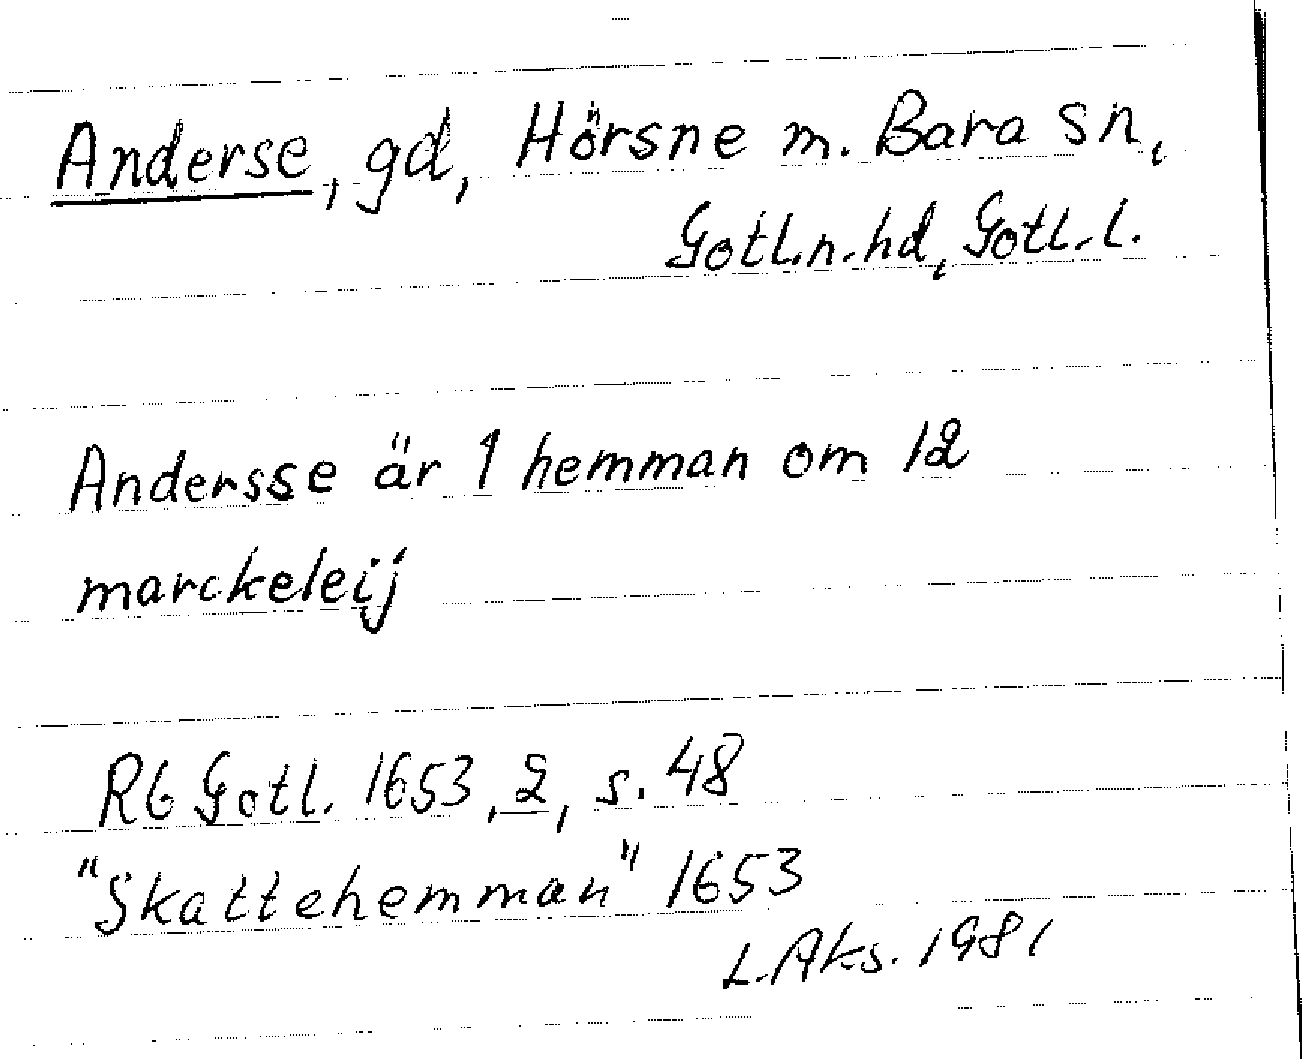 Anderse, gd, Hörsne m. Bara sn,
Gotl.n.hd, Gotl.l.
Andersse är 1 hemman om 12
marckeleij
Rb Gotl. 1653, 2, s. 48
"Skattehemman" 1653
L.Aks. 1981